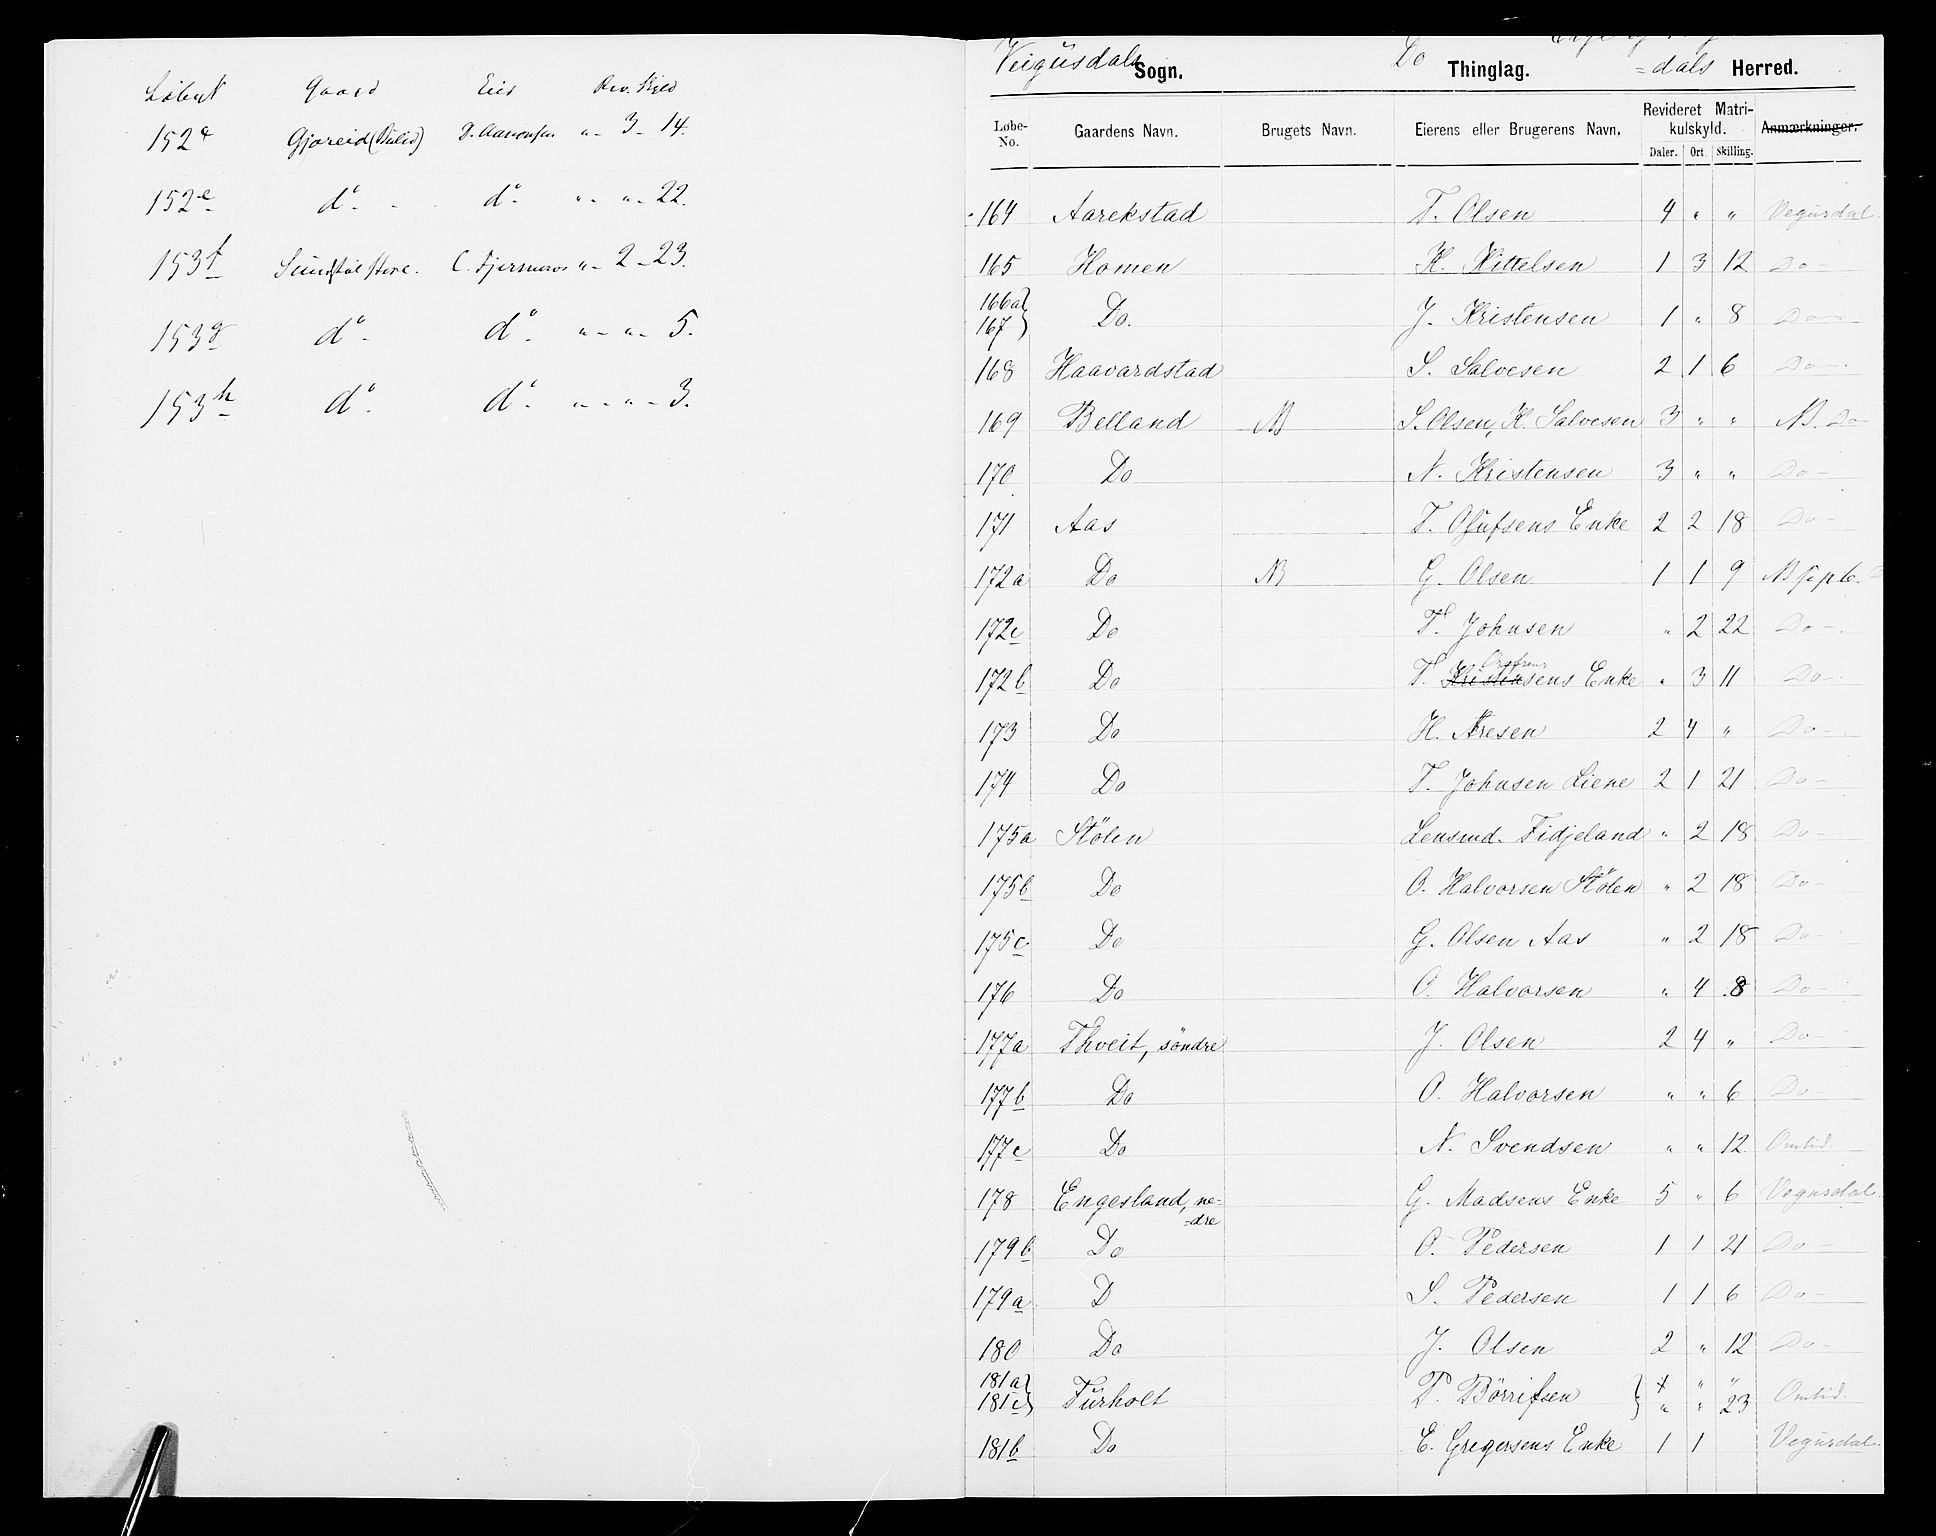 Løbe N Gaard Eier Rev. Skyld
152d Gjæreid 〃 - 3 - 14.
152e do - do - 〃 - 〃 - 22.
153f 〃 - 2 - 23.
153g do - do - 〃 - 〃 - 5.
153h do - do - 〃 - 〃 - 3.
Veigusdals Sogn. Do Thinglag. =dals Herred.
Løbe-No. Gaardens Navn. Brugets Navn. Eierens eller Brugerens Navn. Revideret Matrikulskyld. Daler. Ort. Skilling. Anmærkninger.
164 Aarekstad T. Olsen 4 〃 〃 Vegusdal.
165 Homen K. Kittelsen 1 3 12 Do -
166a} 167} Do. J. Kristensen 1 〃 8 Do -
168 Haavardstad S. Salvesen 2 1 6 Do -
169 Belland NB S. Olsen, K. Salvesen 3 〃 〃 NB. Do
170 Do N. Kristensen 3 〃 〃 Do -
171 Aas T. Olufsens Enke 2 2 18 Do -
172a Do NB G. Olsen 1 1 9 NB
172c Do T. Johnsen 〃 2 22 Do -
172b Do T. Kristensens Enke 〃 3 11 Do -
173 Do H. Aresen 2 4 〃 Do -
174 Do T. Johnsen Liene 2 1 21 Do -
175a Stölen Lensmd. Fidjeland 〃 2 18 Do -
175b Do O. Halvorsen Stölen 〃 2 18 Do -
175c Do G. Olsen Aas 〃 2 18 Do -
176 Do O. Halvorsen 〃 4 8 Do -
177a Thveit, söndre J. Olsen 2 4 〃 Do -
177b Do O. Halvorsen 〃 〃 6 Do -
177c Do N. Svendsen 〃 〃 12 Omlid
178 Engesland, ne-
=dre G. Madsens Enke 5 〃 6 Vegusdal.
179b Do O. Pedersen 1 1 21 Do -
179a D S. Pedersen 1 1 6 Do -
180 Do J. Olsen 2 〃 12 Do -
181a} 181c} Furholt P. Börrifsen } 〃 〃
〃 〃 23 Omlid.
181b Do E. Gregersens Enke 1 1 Vegusdal.